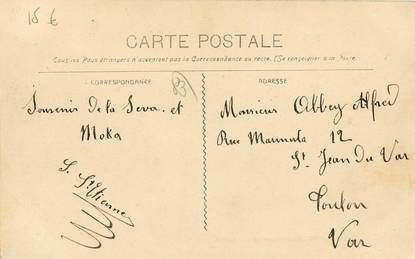 15 €
CARTE POSTALE
Tous les Pays étrangers n'acceptent pas la Correspondance au recto. (Se renseigner à la Poste.
CORRESPONDANCE
83
Souvenir de la Seva et
Moka
S. St Etienne
ADRESSE
Monsieur Abbey Alfred
Rue 12
St Jean du Var
Toulon
Var